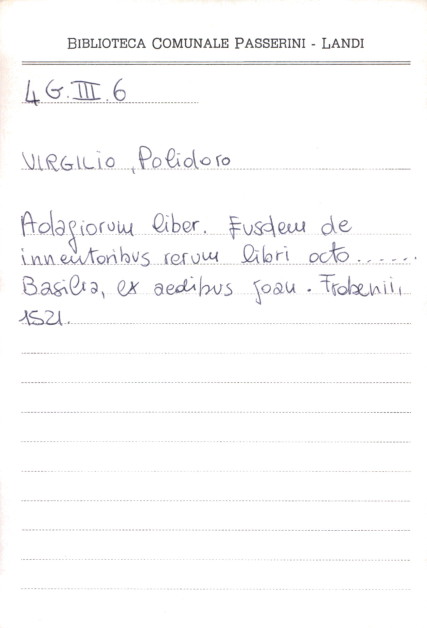 BIBLIOTECA COMUNALE PASSERINI - LANDI
4 G.III.6
VIRGILIO, Polidoro
Adagiorum liber. Eusdem de
inventoribus rerum libri octo.......
Basilea, ex aedibus Joan. Frobenii,
1521.